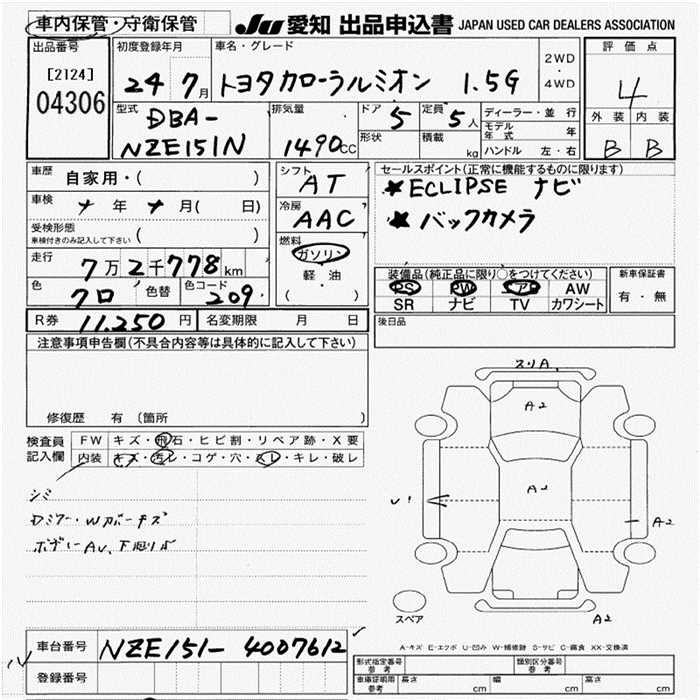 車内保管・守衛保管
JU 愛知 出品申込書 JAPAN USED CAR DEALERS ASSOCIATION
出品番号
[2124]
04306
初度登録年月
24 7月
車名・グレード
トヨタカローラルミオン 1.5G
2WD
・
4WD
評価点
4
外装 内装
B B
型式
DBA-
NZE151N
排気量
1490cc
ドア 5
形状
定員 5人
積載 kg
ディーラー・並行
モデル年式 年
ハンドル 左・右
車歴 自家用・( )
車検 年 月( 日)
受検形態
車検付きのみ記入して下さい ( )
走行 7万2千778km
色 クロ 色替 色コード 209
R券 11.250円 名変期限 月 日
シフト AT
冷房 AAC
燃料
ガソリン
軽・油
( ・ )
セールスポイント(正常に機能するものに限ります)
★ECLIPSE ナビ
★バックカメラ
装備品(純正品に限り○をつけてください)
PS PW エアB AW
SR ナビ TV カワシート
新車保証書
有・無
後日品
注意事項申告欄(不具合内容等は具体的に記入して下さい)
修復歴 有 (箇所 )
検査員記入欄
FW キズ・飛石・ヒビ割・リペア跡・X要
内装 キズ・汚レ・コゲ・穴・スレ・キレ・破レ
シミ
スリA
A2
A2
A2
A2
スペア
A-キズ E-エクボ U-凹み W-補修跡 S-サビ C-腐食 XX-交換済
車台番号 NZE151-4007612
登録番号
形式指定番号 参考
類別区分番号 参考
車庫証明用 参考 長さ cm 幅 cm 高さ cm